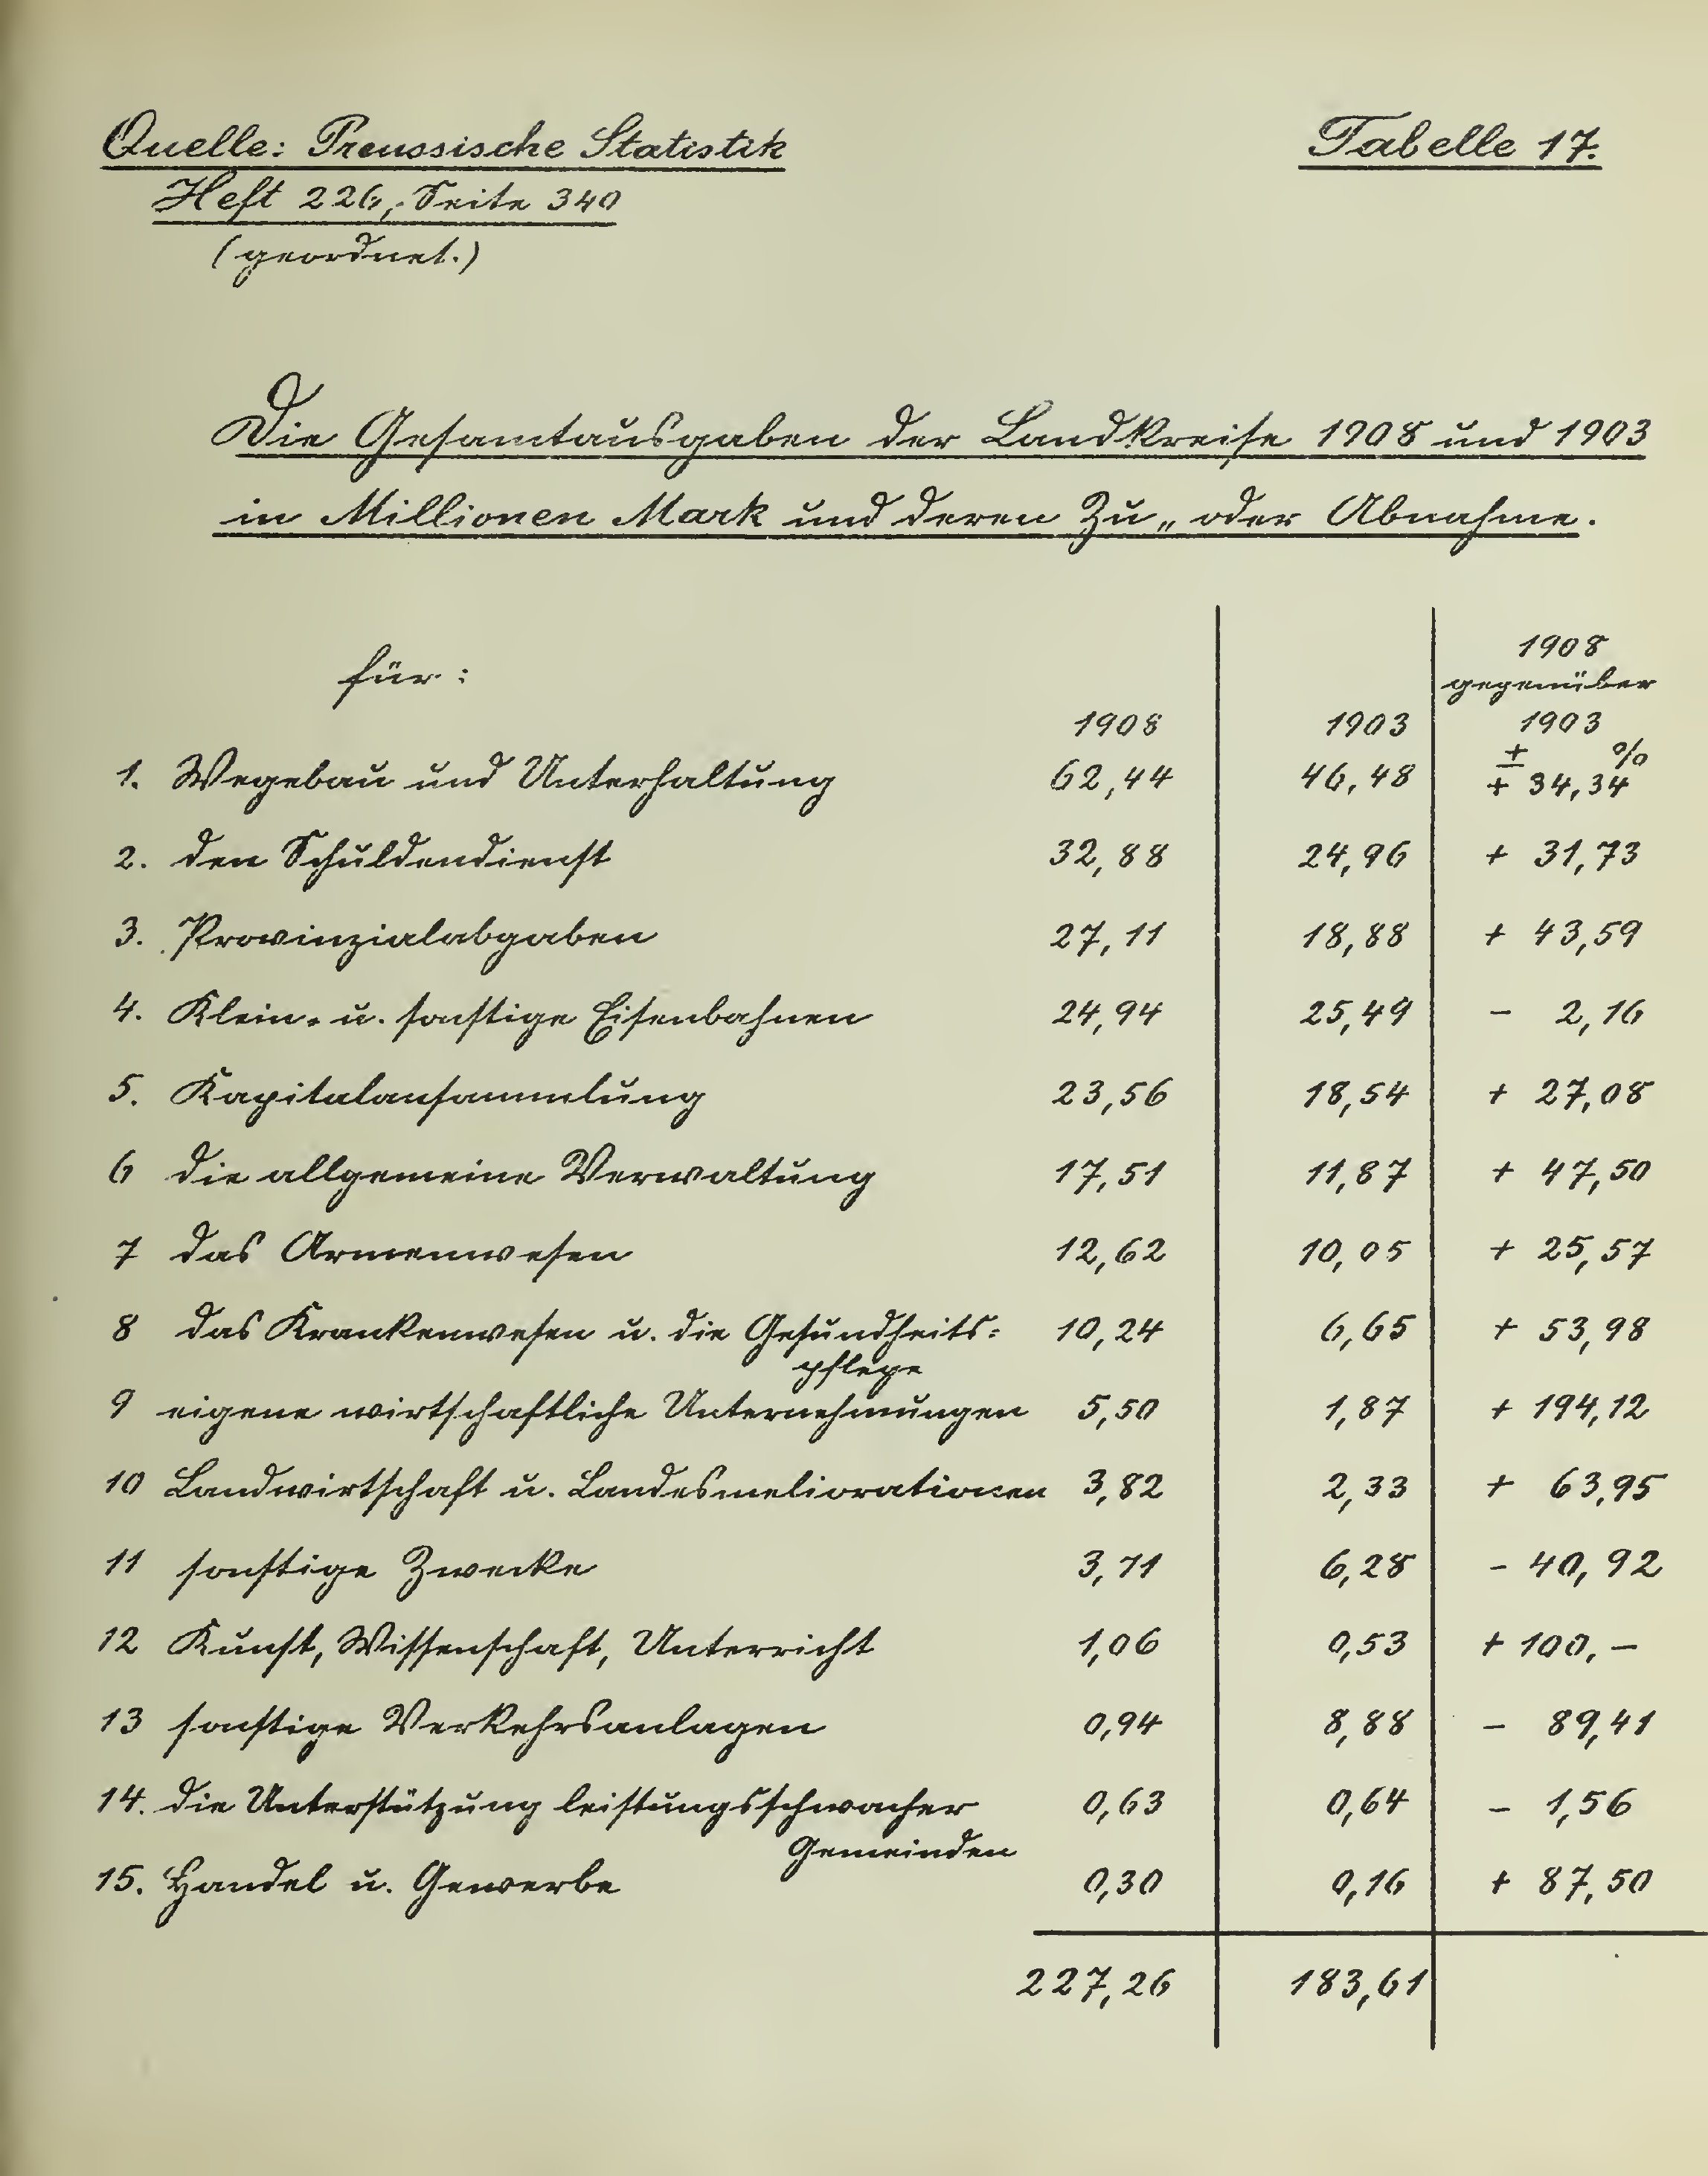 Quelle: Preussische Statistik
Tabelle 17.
Heft 226, Seite 340
(geordnet.)
Die Gesamtausgaben der Landkreise 1908 und 1903
in Millionen Mark und deren Zu„ oder Abnahme.
für: 1908 1903 1908 gegenüber 1903
± %
1. Wegebau und Unterhaltung 62,44 46,48 + 34,34
2. den Schuldendienst 32,88 24,96 + 31,73
3. Provinzialabgaben 27,11 18,88 + 43,59
4. Klein- u. sonstige Eisenbahnen 24,94 25,49 - 2,16
5. Kapitalansammlung 23,56 18,54 + 27,08
6 die allgemeine Verwaltung 17,51 11,87 + 47,50
7 das Armenwesen 12,62 10,05 + 25,57
8 das Krankenwesen u. die Gesundheits= 10,24 6,65 + 53,98
pflege
9 eigene wirtschaftliche Unternehmungen 5,50 1,87 + 194,12
10 Landwirtschaft u. Landesmeliorationen 3,82 2,33 + 63,95
11 sonstige Zwecke 3,71 6,28 - 40,92
12 Kunst, Wissenschaft, Unterricht 1,06 0,53 + 100,—
13 sonstige Verkehrsanlagen 0,94 8,88 - 89,41
14. die Unterstützung leistungsschwacher 0,63 0,64 - 1,56
Gemeinden
15. Handel u. Gewerbe 0,30 0,16 + 87,50
227,26 183,61